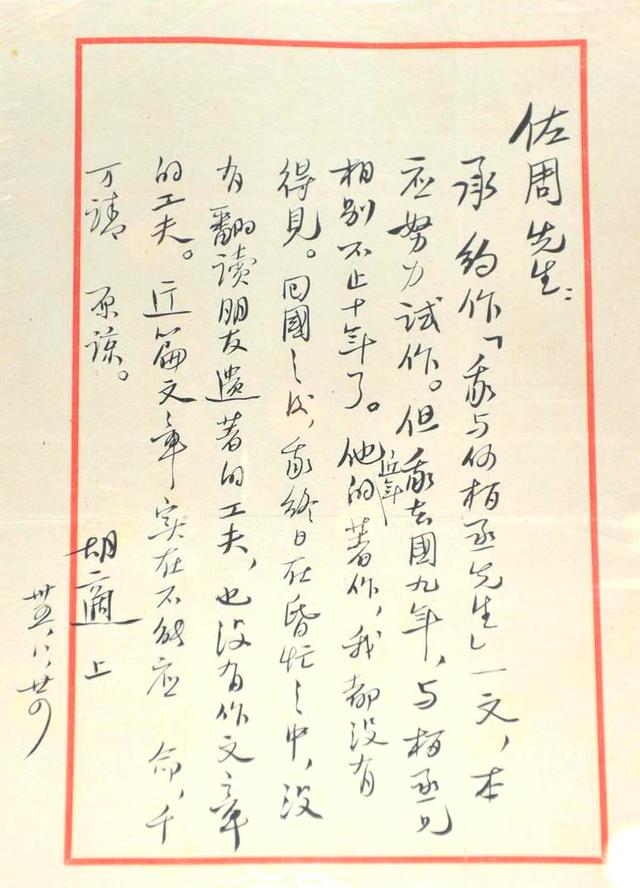 佐周先生：
承 約作「我与何柏丞先生」一文，本
应努力試作。但我去國九年，与柏丞兄
相别不止十年了。他的近年著作，我都没有
得見。回國之後，我終日在昏忙之中，没
有翻讀朋友遺著的工夫，也没有作文章
的工夫。这篇文章实在不能应 命，千
万請 原諒。
胡適 上
卅五，八，廿四